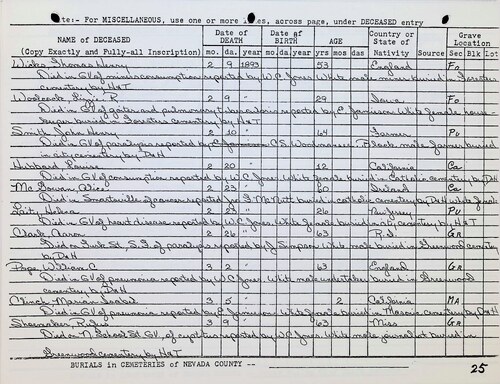 Note:- For MISCELLANEOUS, use one or more lines, across page, under DECEASED entry
NAME of DECEASED (Copy Exactly and Fully-all Inscription) Date of DEATH mo. da. year Date of BIRTH mo. da. year AGE yrs mos das Country or State of Nativity Source Grave Location Sec Blk Lot
Wicks Thomas Henry 2 9 1893 53 England Fo
Died in GV of miners consumption reported by W.C. Jones. White male miner buried in Foresters
cemetery by H&T
Woolcock, R 2 9 " 29 Iowa Fo
Died in GV of reported by C Jamison White female house-
keeper buried in Foresters cemetery by H&T
Smith John Henry 2 10 " 64 Farmer PU
Died in GV of paralysis reported by C.S. Black male farmer buried
in city cemetery by D&H
Hubbard Louise 2 20 " 12 California Ca
Died in GV of consumption reported by W.C. Jones White female buried in Catholic cemetery by D&H
Mc Gowan Alice 2 23 " 60 Ireland Ca
Died in Smartsville of cancer reported by buried in catholic cemetery by D&H white female
Laity Helena 2 24 " 26 New Jersey PU
Died in GV of heart disease reported by W.C. Jones, White female buried in city cemetery by H&T
Clark Aaron 2 26 " 63 R.I. GR
Died on Turk St, S.F. of paralysis reported by J Simpson White male buried in Greenwood cemetery
by D&H
Pope William C 3 2 " 63 England GR
Died in GV of pneumonia reported by W.C. Jones White male undertaker buried in Greenwood
cemetery by D&H
Clinch Marian Isabel 3 5 " 2 California MA
Died in GV of pneumonia reported by C Jamison White female buried in Masonic cemetery by D&H
Shoemaker, Rufus 3 9 " 63 Miss GR
Died on N. School St. GV, of reported by W.C. Jones White male journalist buried in
Greenwood cemetery by H&T
BURIALS in CEMETERIES of NEVADA COUNTY -- 25